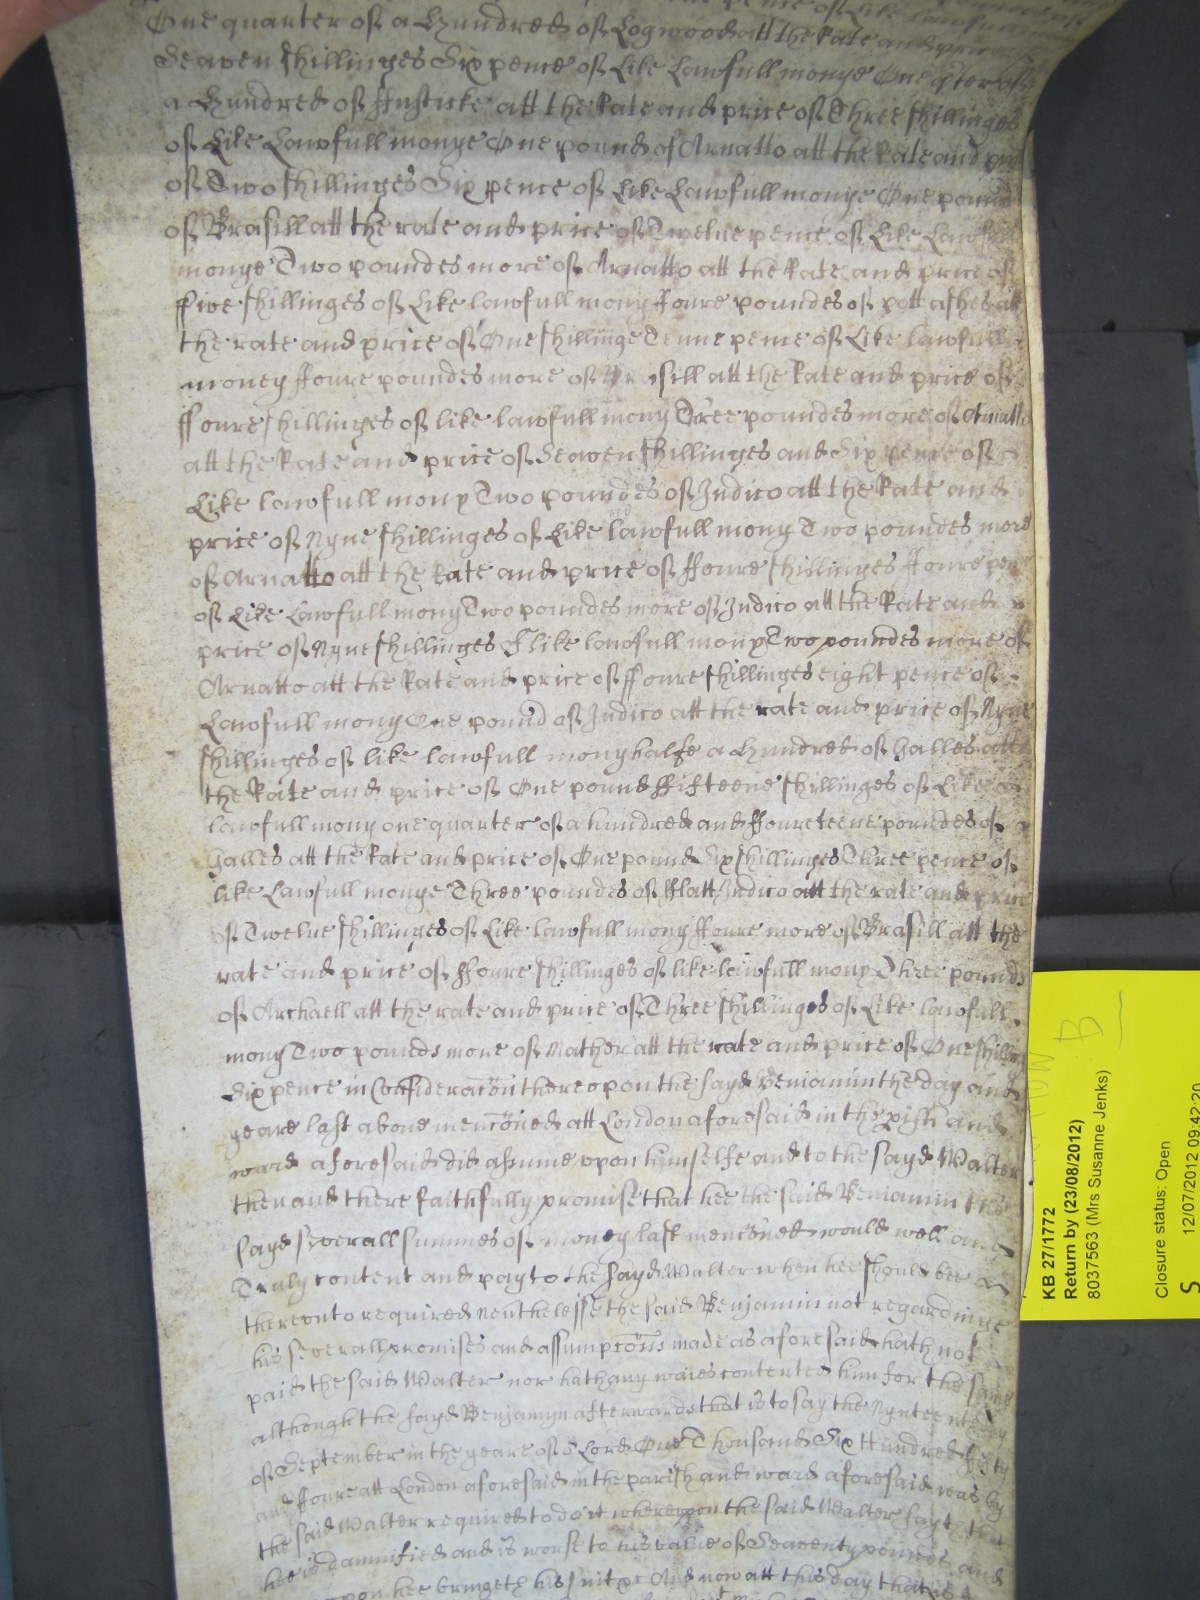 One quarter of a Hundred of Logwood att the Rate and price
Seaven shillinges Six pence of Like Lawfull monye One qter of
a Hundred of ffusticke att the Rate and price of Three shillinges
of Like Lawfull monye One pound of Arnatto att the Rate and pri
of Two shillinges Six pence of Like Lawfull monye One pound
of Brasill att the rate and price of Twelve pence of Like Lawfull
monye Two poundes more of Arnatto att the Rate and price of
ffive shillinges of Like lawfull mony ffoure poundes of pott ashes att
the rate and price of One shillinge Tenne pence of Like lawfull
money ffoure poundes more of Brasill att the Rate and price of
ffoure shillinges of like lawfull mony Three poundes more of Arnatto
att the Rate and price of Seaven shillinges and Six pence of
Like lawfull mony Two poundes of Indico att the Rate and
price of Nyne shillinges of Like lawfull mony Two poundes more
of Arnatto att the Rate and price of ffoure shillinges ffoure pen
of Like Lawfull mony Two poundes more of Indico att the Rate and
price of Nyne shillinges of like lawfull mony Two poundes more of
Arnatto att the Rate and price of ffoure shillinges eight pence of
Lawfull mony One pound of Indico att the rate and price of Nyne
shillinges of like lawfull mony halfe a Hundred of Galles att
the Rate and price of One pound ffifteene shillinges of Like
lawfull mony one quarter of a hundred and ffoureteene poundes of
Galles att the Rate and price of One pound Six shillinges Three pence of
like Lawfull monye Three poundes of fflatt Indico att the rate and price
of Twelve shillinges of Like lawfull mony ffoure more of Brasill att the
rate and price of ffoure shillinges of like lawfull mony Three pounds
of Archaell att the rate and price of Three shillinges of Like lawfull
mony Two pounds more of Mather att the rate and price of One shilling
Six pence in Consideracon thereopon the sayd Beniamin the day and
yeare last above menconed att London aforesaid in the pish and
ward aforesaid did assume upon himselfe and to the sayd Walter
then and there faithfully promise that hee the said Beniamin the
sayd severall summes of money last menconed would well and
Truly content and pay to the sayd Walter when hee should bee
thereonto required nevthelesse the said Benjamin not regardinge
his severall promises and assumpcons made as aforesaid hath not
paid the said Walter nor hath any waies contented him for the same
althought the sayd Benjamyn afterwards that is to say the Nynteenth day
of September in the yeare of o Lord One Thousand Six Hundred ffifty
and ffoure att London aforesaid in the parish and ward aforesaid was by
the said Walter required to do it whereupon the said Walter sayth that
hee is damnified and is worse to his value of Seaventy pounds and
hee bringeth his suit &c And now att this day that is
KB 27/1772
Return by (23/08/2012)
8037563 (Mrs Susanne Jenks)
Closure status: Open
S 12/07/2012 09:42:20
B